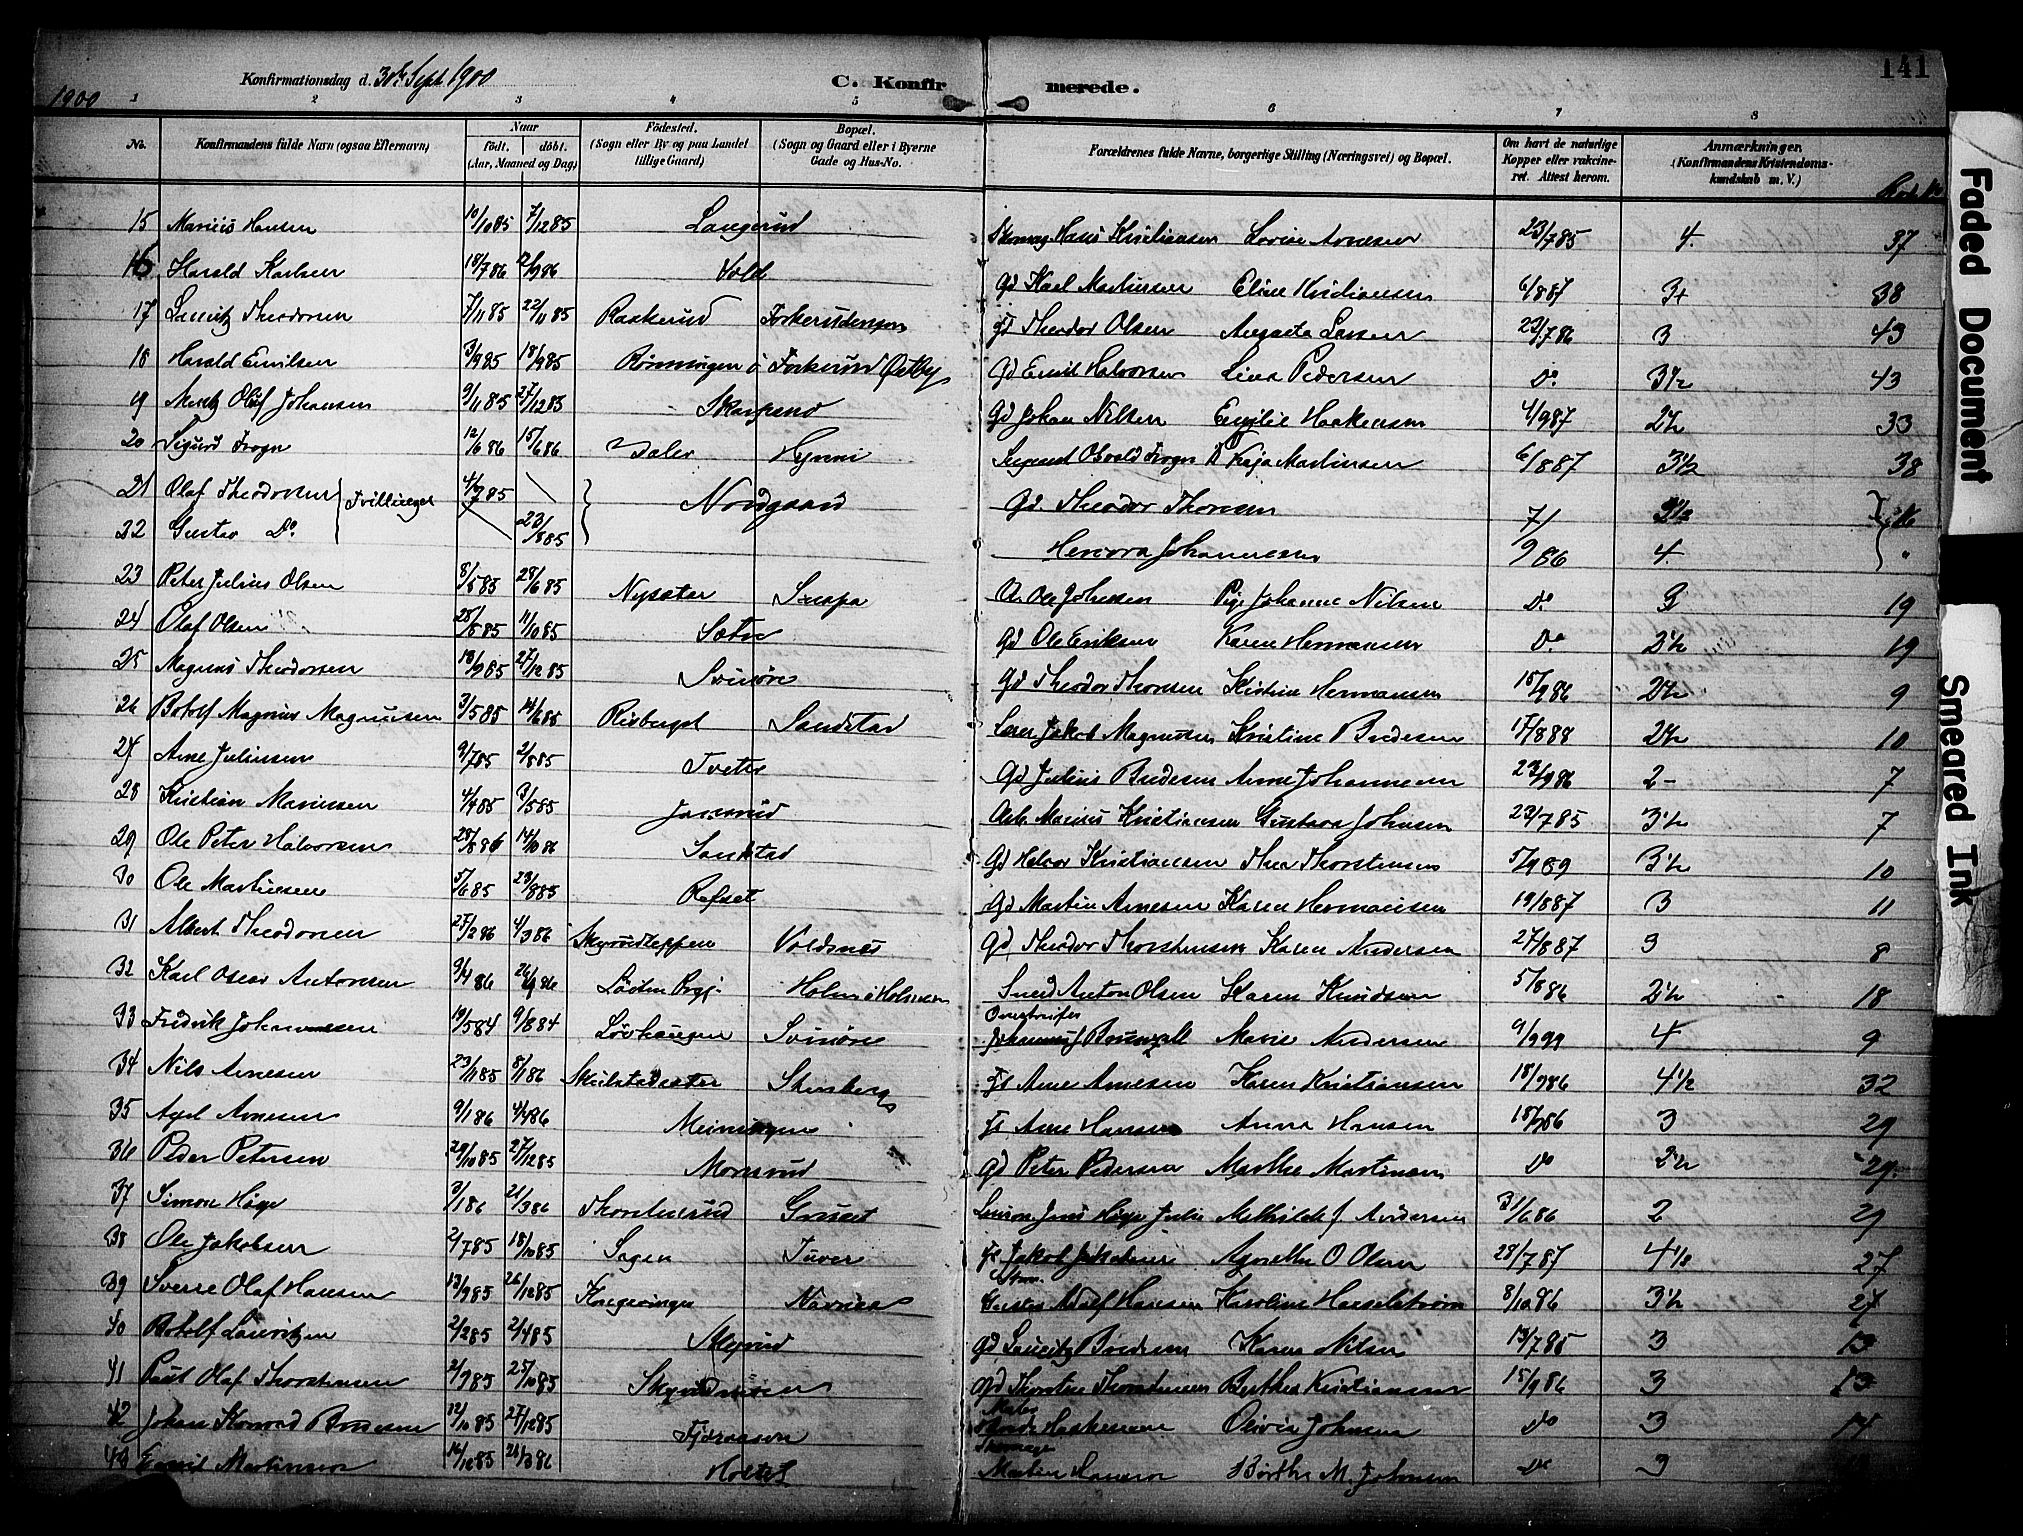 141
1900
Konfirmationsdag d. 30te Sept 1900
C. Konfirmerede.
1 2 3 4 5 6 7 8
No. Konfirmandens fulde Navn (ogsaa Efternavn) Naar født. døbt. (Aar, Maaned og Dag) Fødested. (Sogn eller By og paa Landet tillige Gaard) Bopæl. (Sogn og Gaard eller i Byerne Gade og Hus-No. Forældrenes fulde Navne, borgerlige Stilling (Næringsvei) og Bopæl. Om havt de naturlige Kopper eller vakcineret. Attest herom. Anmærkninger. (Konfirmandens Kristendomskundskab m. V.)
15 Marius Hansen 10/10 85 7/12 85 Langerud Hans Kristiansen Lovise Arnesen 23/7 85 4. 37
16 Harald Karlsen 18/7 86 2/9 86 Vold Gd Karl Martinsen Eline Kristiansen 6/8 87 3+ 38
17 Lauritz Theodorsen 7/11 85 22/11 85 Raskerud Theodor Olsen Augusta Larsen 23/7 86 3 43
18 Harald Emilsen 3/9 85 18/9 85 Rønningen i Forkerud Østby Gd Emil Halvorsen Lina Pedersen Do 3 1/2 43
19 Olaf Johansen 9/11 85 27/12 85 Skarpsno Gd Johan Nilsen Emilie Haakensen 4/9 87 2 1/2 33
20 Sigurd Frogn 12/6 86 15/6 86 Hynni Osvald Frogn Kaja Martinsen 6/8 87 3 1/2 38
21 Olaf Theodorsen Tvillinger 4/7 85 Nordgaard Gd. Theodor Thoresen 7/ 2 1/2
22 Gustav Do 23/8 85 Johannesen 9 86 4. "
23 Peter Julius Olsen 8/5 85 28/6 85 Nysæter Snapa Ole Johnsen Pige Johanne Nilsen Do 3 19
24 Olaf Olsen 28/8 85 11/10 85 Sætre Gd Ole Eriksen Karen Hermansen Do 2 1/2 19
25 Magnus Theodorsen 18/9 85 27/12 85 Svinøre Gd Theodor Thoresen Kristine Hermansen 15/9 86 2 1/2 9
26 Botolf Magnus Magnussen 3/5 85 14/6 85 Risberget Sandstad Jakob Magnussen Kristine Bredesen 17/8 88 2 1/2 10
27 Arne Juliussen 9/7 85 2/8 85 Tveter Gd Julius Bredesen Anne Johannesen 23/9 86 2- 7
28 Kristian Mariussen 4/4 85 3/5 85 Arb. Marius Kristiansen Gustava Johnsen 23/7 85 3 1/2 7
29 Ole Peter Halvorsen 28/8 86 14/10 86 Sandstad Gd Halvor Kristiansen Thea Thorstensen 5/9 89 3 1/2 10
30 Ole Martinsen 5/6 85 23/8 85 Refset Gd Martin Arnesen Karen Hermansen 19/8 87 3 11
31 Albert Theodorsen 27/2 86 4/3 86 Voldsnes Gd Theodor Thorstensen Karen Andersen 27/8 87 3 8
32 Karl Oscar Antonsen 9/4 86 26/9 86 Løiten Holm i Anton Olsen Karen Knudsen 5/8 86 2 1/2 18
33 Fredrik Johannessen 19/5 84 9/8 84 Løvhaugen Svinøre Marie Andersen 9/9 99 4 9
34 Nils Arnesen 23/11 85 8/1 86 Skulstadsæter Stenberg Fs Arne Arnesen Karen Kristiansen 18/9 86 4 1/2 32
35 Axel Arnesen 9/1 86 4/4 86 Fs Arne Hansen Anna Hansen 18/9 86 3 29
36 Peder Petersen 29/10 85 27/12 85 Mornrud Gd Peter Pedersen Marthe Martinsen Do 2 1/2 29
37 Simon Høge 3/1 86 21/3 86 Thorsteinrud Gruset Jens Høge Julie Mathilde f Andersen 31/6 86 2 29
38 Ole Jakobsen 2/7 85 18/10 85 Sagen Tuver Fs Jakob Jakobsen Agnethe O Olsen 28/7 87 4 1/2 27
39 Sverre Olaf Hansen 13/9 85 26/12 85 Kongsvinger Gustav Adolf Hansen Karoline Hasselstrøm 8/10 86 3 1/2 27
40 Botolf Lauritzen 2/2 85 2/4 85 Gd Lauritz Bredesen Karen Nilsen 13/7 85 3 13
41 Paul Olaf Thorstensen 2/9 85 25/10 85 Gd Thorsten Thorstensen Berthe Kristiansen 15/9 86 3 13
42 Johan Konrad 12/10 85 27/12 85 Haakensen Olivia Johnsen Do 3
43 Emil Martinsen 21/3 86 Holtet Martin Hansen Berthe M. Johnsen Do 3
Faded Document
Smeared Ink